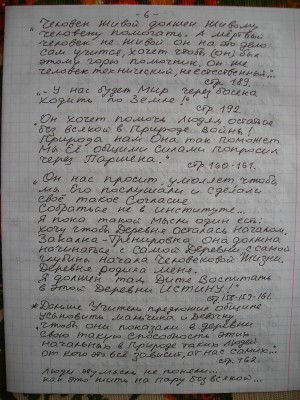 - 6 -
"Человек живой должен живому
человеку помогать. А мёртвый
человек не живой он на это дело
сам учится, хочет чтоб (он) был
этому горю помощник. Он же
человек технический, неестественный..."
стр. 189.
"- У нас будет Мир через босика
ходить по Земле!"
стр. 192.
"Он хочет помочь людям остаться
без всякой в Природе Войны!
Природа нам Она так поможет
Мы Её общими силами попросим
через Паршека."
стр. 160-161.
"Он нас просит, умоляет чтобы
мы его послушали и сделали
своё такое согласие
Собраться не в институте...
Я пока такой Мысли один есть:
хочу чтоб Деревня осталась началом.
Закалка-Тренировка Она должна
начинаться с Самой Деревни, с самой
глубины начала Человековой Жизни.
Деревня родила меня.
Я должен там Дитя Воспитать
в этой Деревни ИСТИНУ!"
стр. 161.
* Дальше Учитель предложил общине
усыновить Мальчика и Девочку
"чтоб они показали в деревни
свою такую способность этих
начальных в Природе таких Людей
от кого это всё зависит, от нас самих..."
стр. 162.
Люди эту мысль не поняли...
как это жить на пару без всякой...